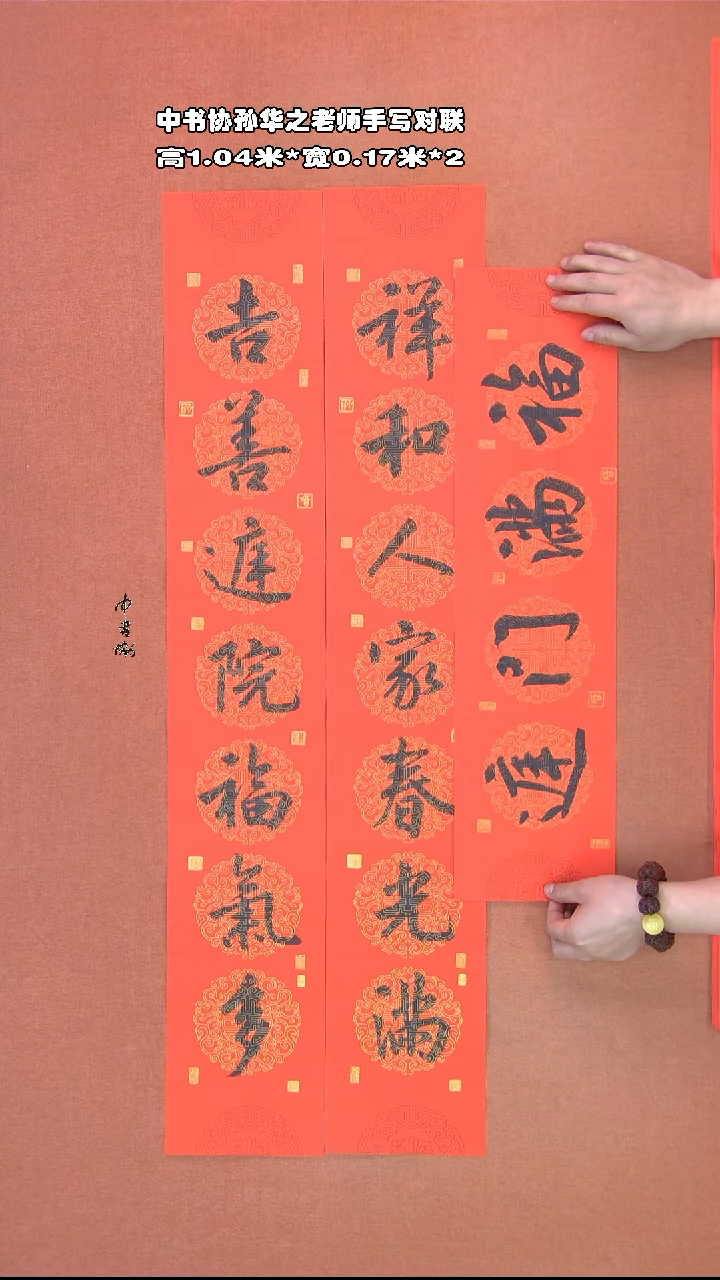 中书协孙华之老师手写对联
高1.04米*宽0.17米*2
福满门庭
祥和人家春光满
吉善庭院福氣多